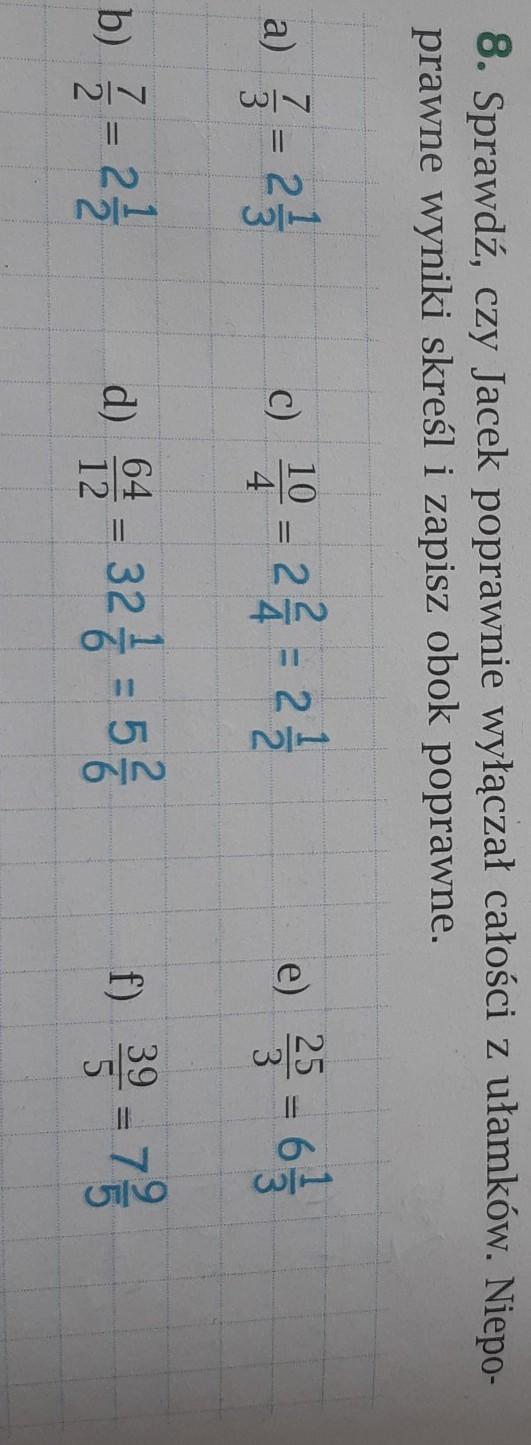 8. Sprawdź, czy Jacek poprawnie wyłączał całości z ułamków. Niepo-
prawne wyniki skreśl i zapisz obok poprawne.
a) 7/3 = 2 1/3
c) 10/4 = 2 2/4 = 2 1/2
e) 25/3 = 6 1/3
b) 7/2 = 2 1/2
d) 64/12 = 32 1/6 = 5 2/6
f) 39/5 = 7 9/5